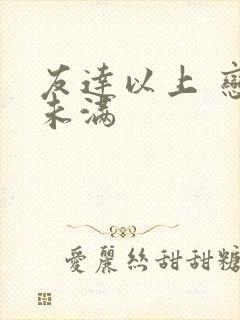 友達以上
未满
愛麗絲甜甜糖